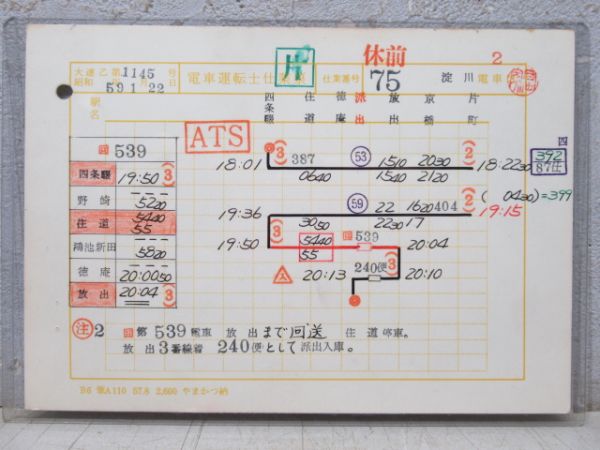 休前
2
大運乙第1145号
昭和59.1.22日
電車運転士仕業票
仕業番号 75
淀川電車
駅名
四条畷 住道 徳庵 派出 放出 京橋 片町
ATS
回539
四条畷 19:50 3
野崎 5220
住道 5440 55
鴻池新田 5820
徳庵 20:0050
放出 20:04 3
18:01 3 387 53 1510 2030 2 18:2230
0640 1540 2120
四
392
87仕
19:36 59 22 1620 404 2 (0430)=399
3050 2230 17 19:15
19:50 3 5440 回539 20:04
55
20:13 240便 3 20:10
注2 回第539電車 放出まで回送 住道停車。
放出3番線着 240便として派出入庫。
B6 電A110 57.8 2,600 やまかつ納